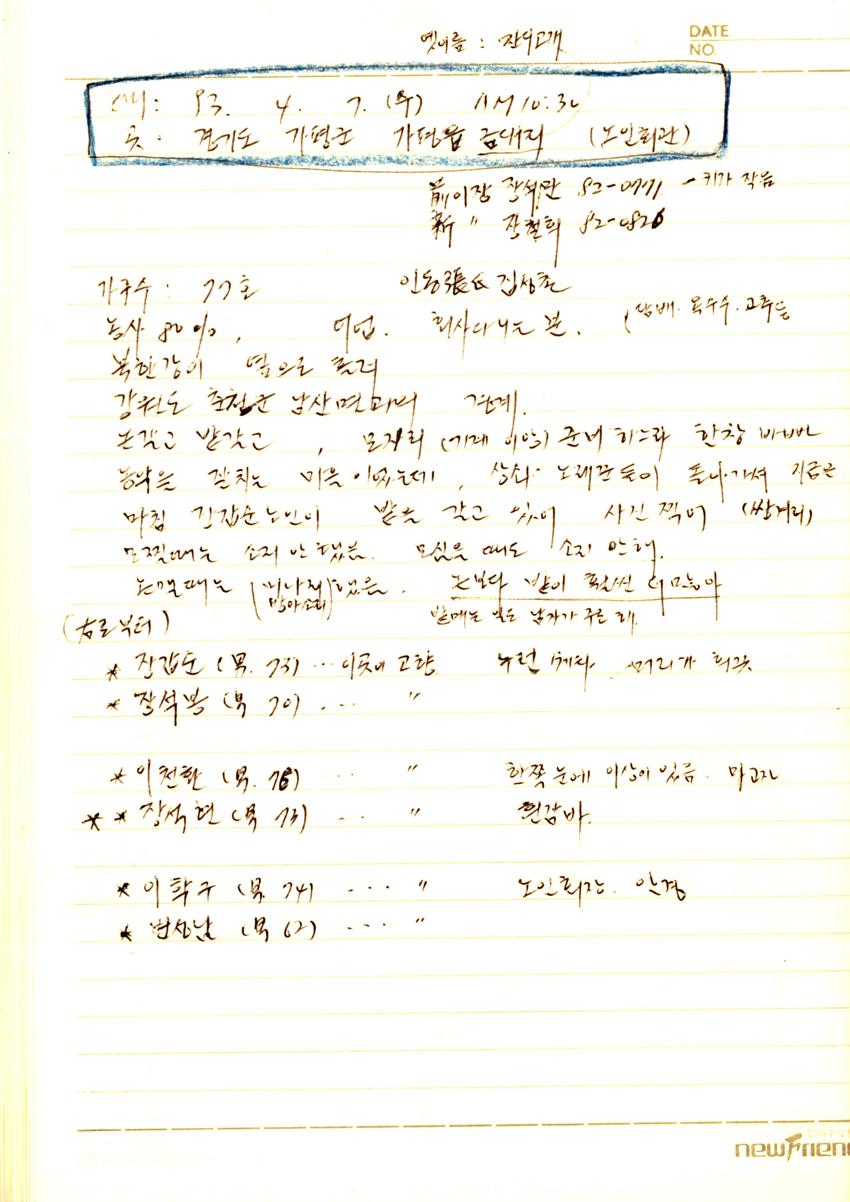 옛이름 : 잔디고개
DATE
NO.
때: 93. 4. 7. (수) AM 10:30
곳: 경기도 가평군 가평읍 금대리 (노인회관)
前이장 장석만 82-0771 - 키가 작음
新 〃 장철희 82-0826
가구수 : 77호 인동張氏 집성촌
농사 80%, 어업. 회사다니는 분. (담배. 옥수수. 고추등
북한강이 옆으로 흘러
강원도 춘천군 남산면과의 경계.
논갈고 밭갈고, 모자리 준비 하느라 한창 바빠
농악을 잘치는 마을이었는데, 상쇠. 노래꾼들이 돌아가셔 지금은
마침 장갑순노인이 밭을 갈고 있어 사진 찍어 (쌍겨리)
모찔때는 소리 안했음. 모심을 때도 소리 안해.
논맬때는 (방아소리) 했음. 논보다 밭이 훨씬 더 많아
밭매는 일은 남자가 주로 해.
(右로부터)
* 장갑순 (男. 73) ... 이곳이 고향 누런 머리가 희끗
* 장석봉 (男 70) ... 〃
* 이천환 (男. 78) ... 〃 한쪽 눈에 이상이 있음. 마고자
* * 장석현 (男 73) ... 〃 흰잠바.
* 이학구 (男. 74) .... 〃 노인회장. 안경
* 변성남 (男 62) .... 〃
newFrien